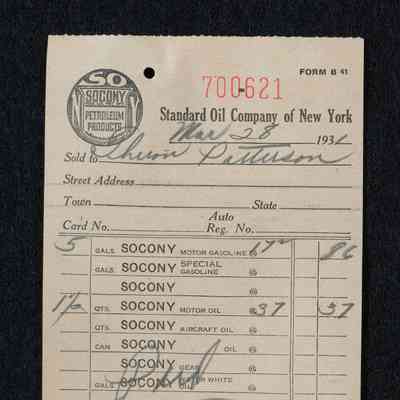 FORM B 41
SO
SOCONY
N Y
PETROLEUM
PRODUCTS
700-621
Standard Oil Company of New York
Mar 28 1931
Sold to Sheron Patterson
Street Address
Town State
Card No. Auto Reg. No.
5 GALS. SOCONY MOTOR GASOLINE @ 17 2 86
GALS. SOCONY SPECIAL GASOLINE @
SOCONY @
1 1/2 QTS. SOCONY MOTOR OIL @ 37 37
QTS. SOCONY AIRCRAFT OIL @
CAN SOCONY OIL @
SOCONY GEAR @
GALS. SOCONY WATER WHITE OIL @
Paid